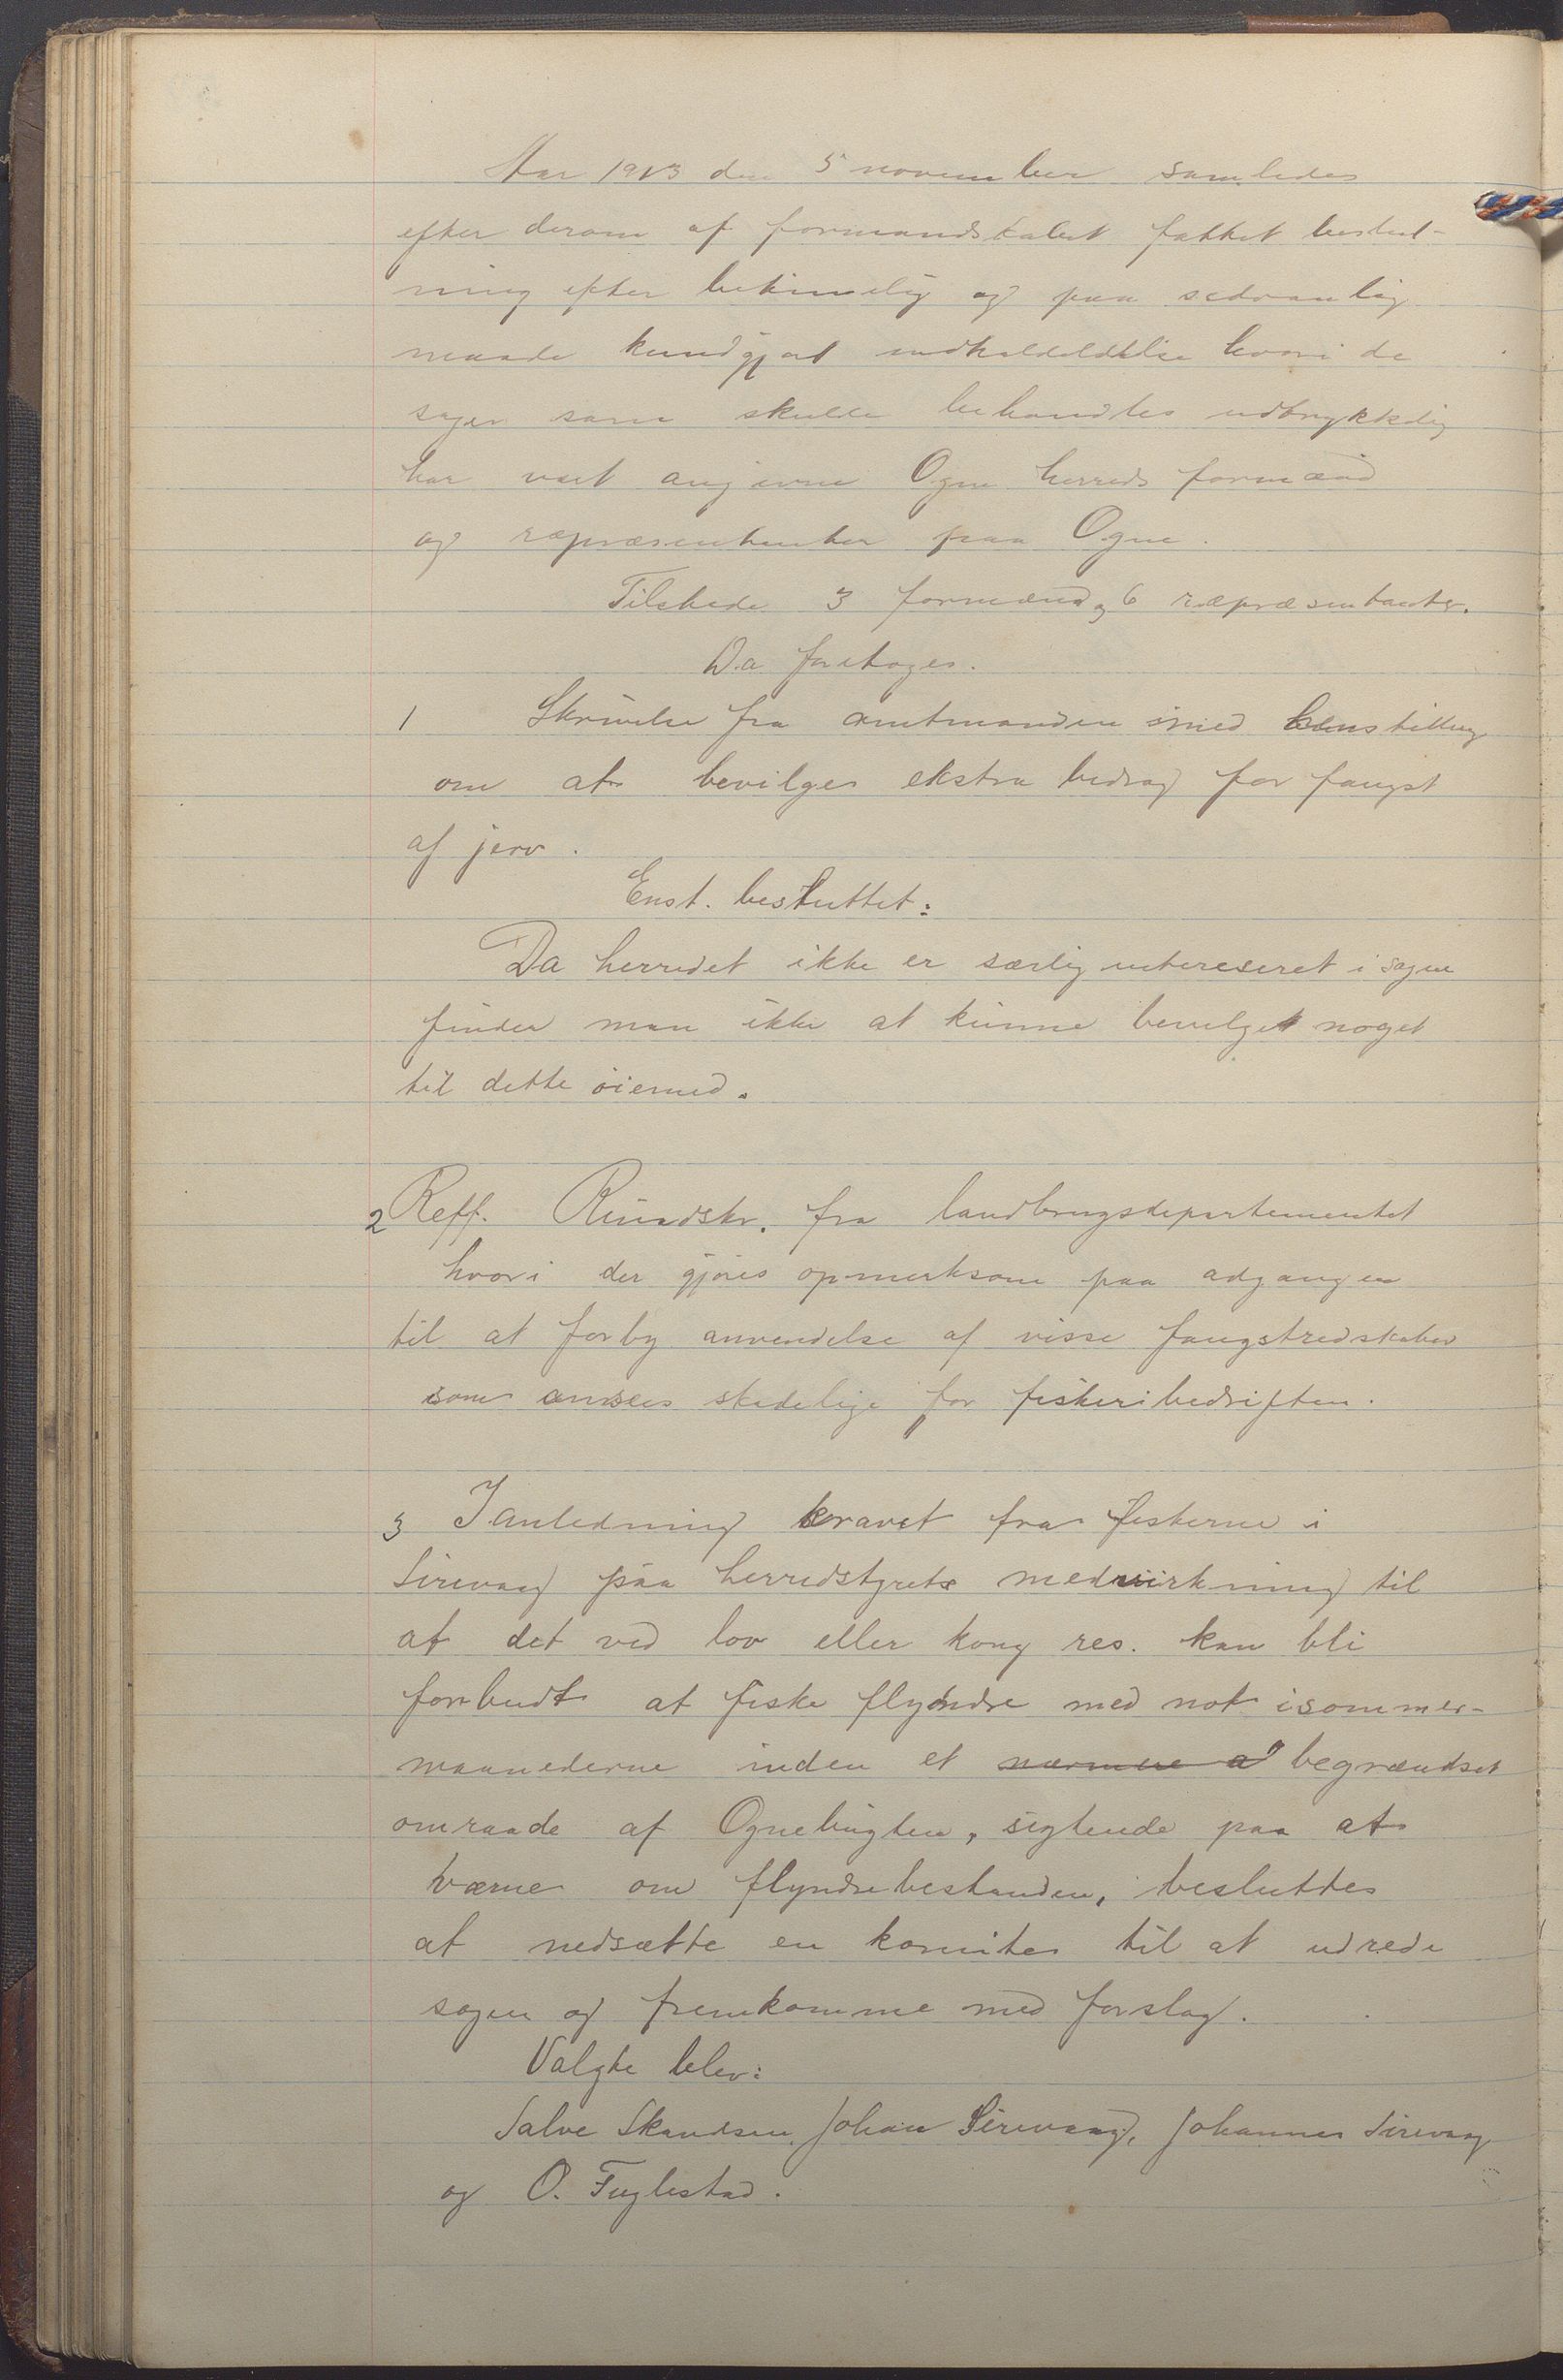 Aar 1913 den 5 november samledes
efter derom af formandskabet fattet beslut-
ning efter betimelig og paa sedvanlig
maade kundgjort indkaldelse hvori de
sager som skulle behandles udtrykkelig
har vært angivne Ogne herreds formænd
og repræsentanter paa Ogne.
Tilstede 3 formænd og 6 repræsentanter.
Da foretoges.
1 Skrivelse fra amtmanden med henstilling
om at bevilges ekstra bidrag for fangst
af jerv.
Enst. besluttet:
Da herredet ikke er særlig intereseret i sagen
finder man ikke at kunne bevilget noget
til dette øiemed.
2 Reff. Rundskr. fra landbrugsdepartementet
hvori der gjøres opmerksom paa adgangen
til at forby anvendelse af visse fangstredskaber
som ansees skadelige for fiskeribedriften.
3 I anledning kravet fra fiskerne i
Sirevaag paa herredstyrets medvirkning til
at det ved lov eller kong res. kan bli
forbudt at fiske flyndre med not i sommer-
maanederne inden et nærmere a begrændset
omraade af Ognebugten, sigtende paa at
værne om flyndrebestanden, besluttes
at nedsætte en komite til at udrede
sagen og fremkomme med forslag.
Valgte blev:
Salve Skandsen, Johan Sirevaag, Johannes Sirevaag
og O. Fuglestad.